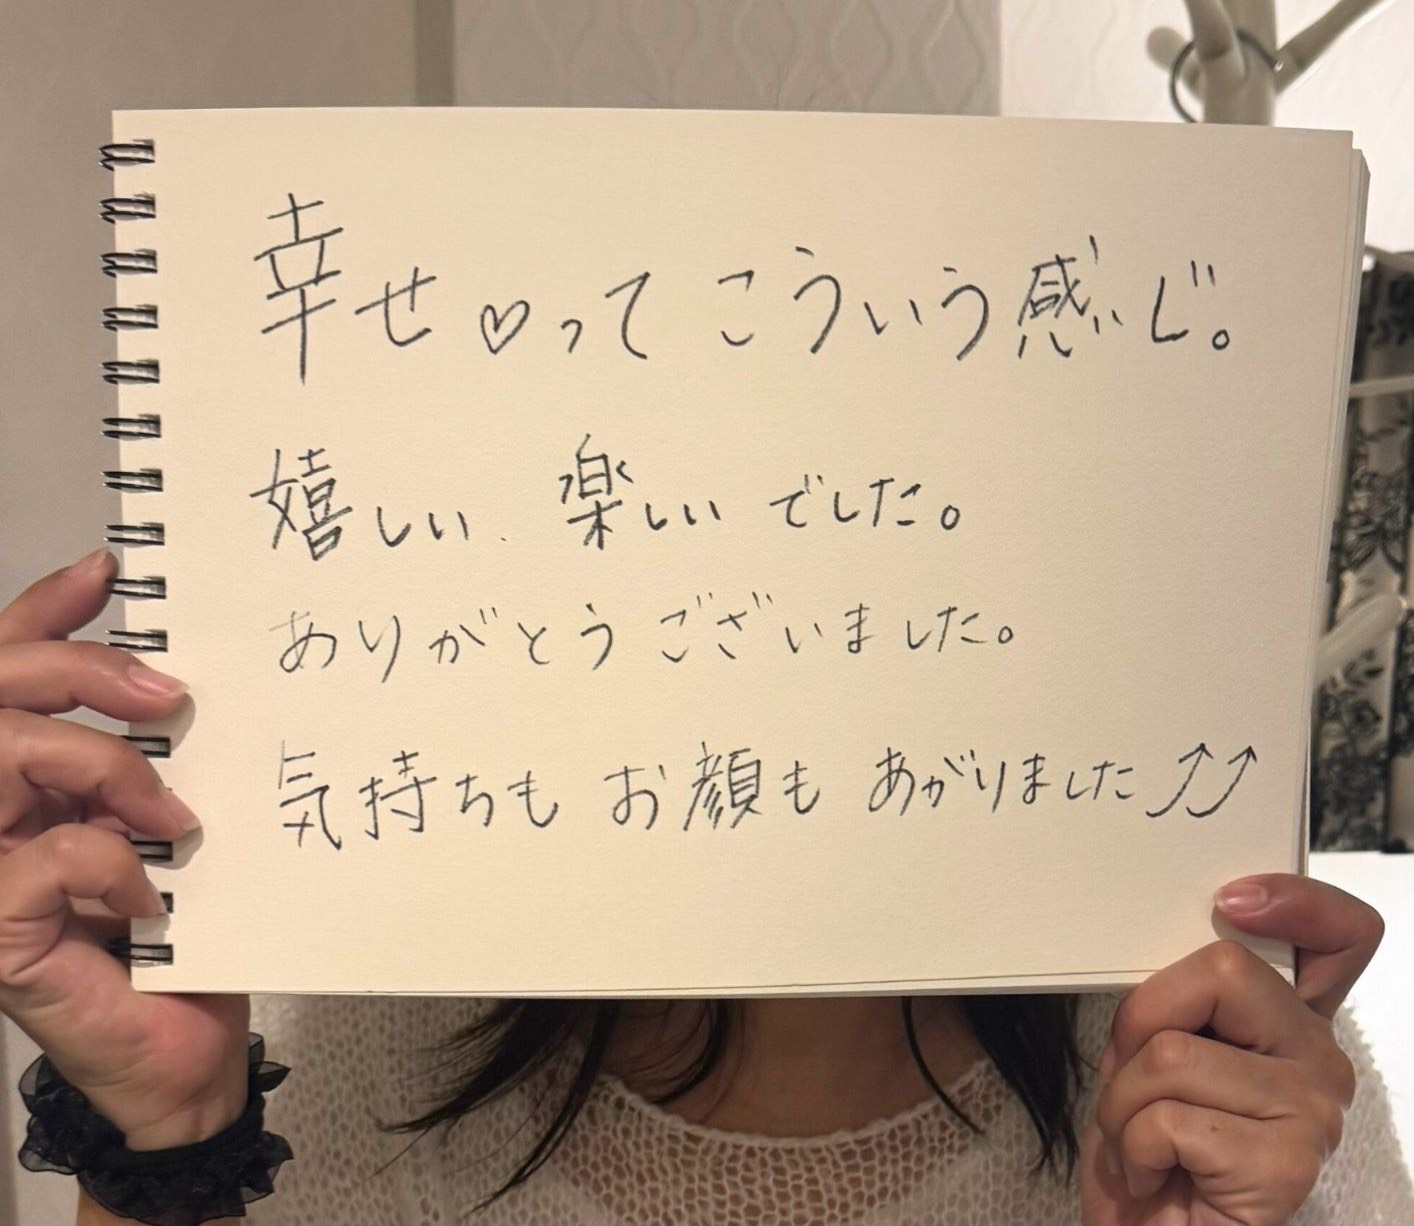 幸せ♡ってこういう感じ。
嬉しい、楽しいでした。
ありがとうございました。
気持ちもお顔もあがりました⤴⤴